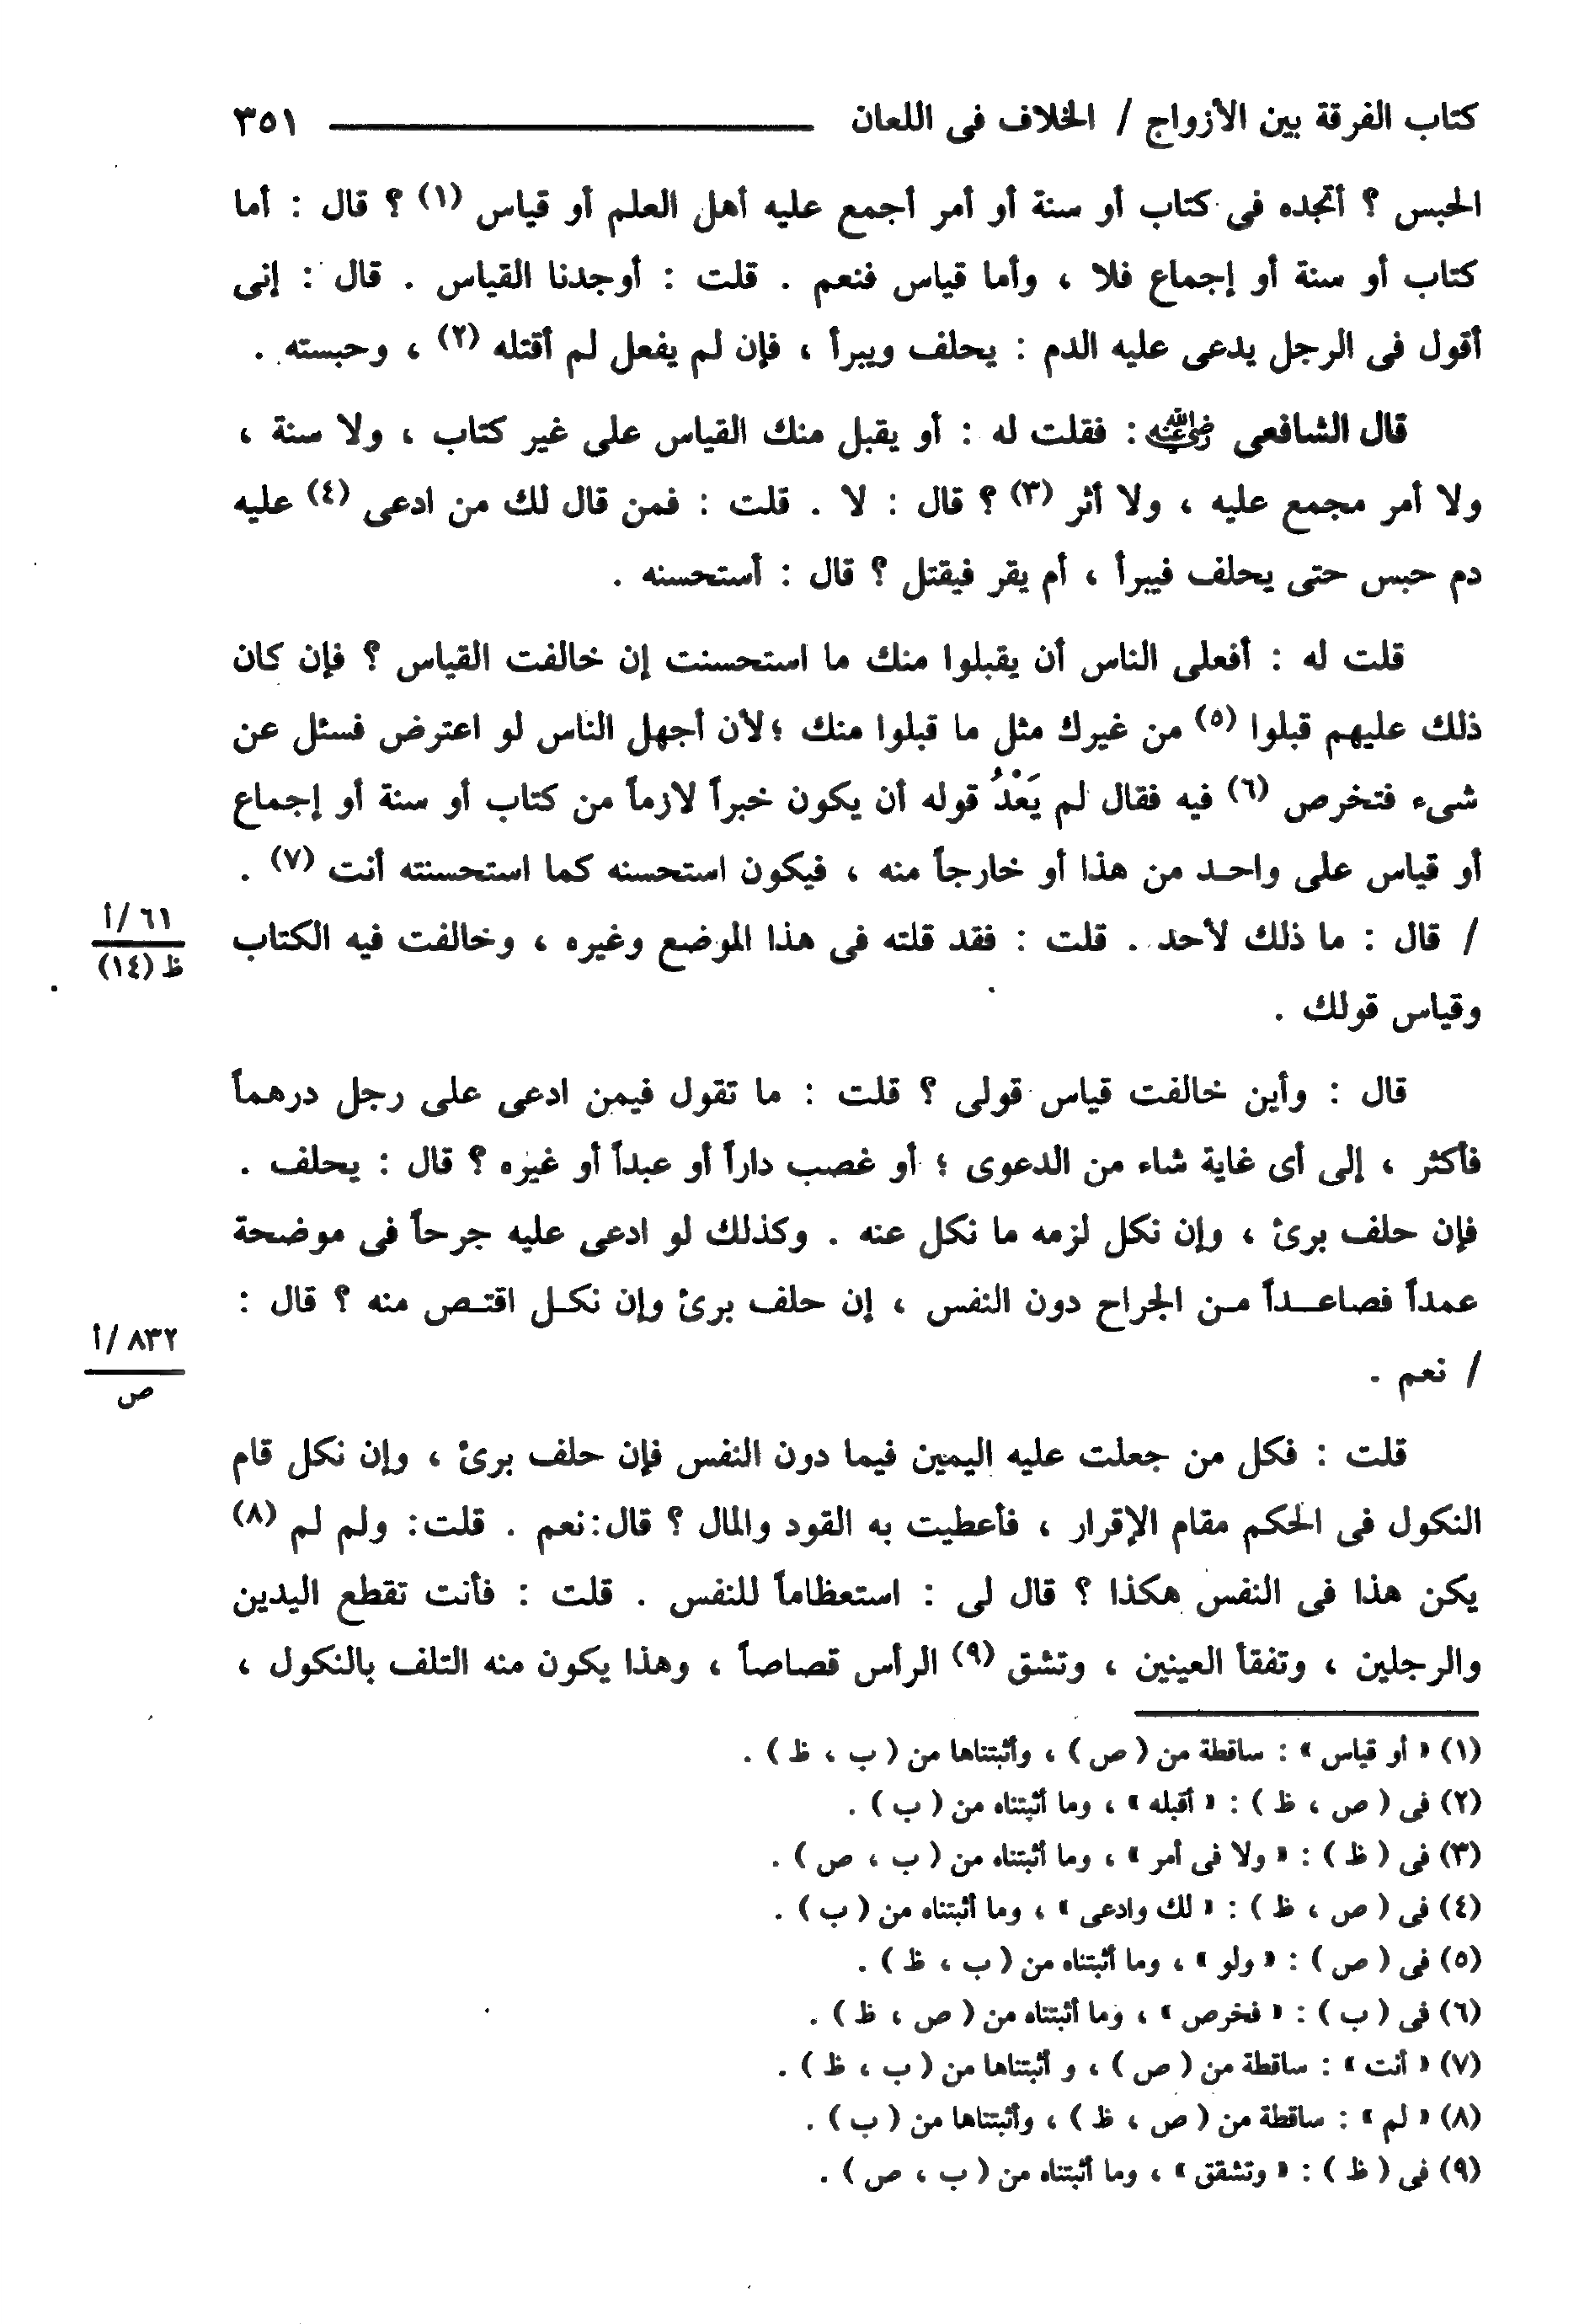 كتاب الفرقة بين الأزواج / الخلاف فى اللعان ٣٥١
الحبس ؟ أتجده فى كتاب أو سنة أو أمر أجمع عليه أهل العلم أو قياس (١) ؟ قال : أما
كتاب أو سنة أو إجماع فلا ، وأما قياس فنعم . قلت : أوجدنا القياس . قال : إنى
أقول فى الرجل يدعى عليه الدم : يحلف ويبرأ ، فإن لم يفعل لم أقتله (٢) ، وحبسته .
قال الشافعى رضي الله عنه : فقلت له : أو يقبل منك القياس على غير كتاب ، ولا سنة ،
ولا أمر مجمع عليه ، ولا أثر (٣) ؟ قال : لا . قلت : فمن قال لك من ادعى (٤) عليه
دم حبس حتى يحلف فيبرأ ، أم يقر فيقتل ؟ قال : أستحسنه .
قلت له : أفعلى الناس أن يقبلوا منك ما استحسنت إن خالفت القياس ؟ فإن كان
ذلك عليهم قبلوا (٥) من غيرك مثل ما قبلوا منك ؛ لأن أجهل الناس لو اعترض فسئل عن
شىء فتخرص (٦) فيه فقال لم يَعْدُ قوله أن يكون خبراً لازماً من كتاب أو سنة أو إجماع
أو قياس على واحد من هذا أو خارجاً منه ، فيكون استحسنه كما استحسنته أنت (٧) .
/ قال : ما ذلك لأحد . قلت : فقد قلته فى هذا الموضع وغيره ، وخالفت فيه الكتاب
٦١/أ
ظ (١٤)
وقياس قولك .
قال : وأين خالفت قياس قولى ؟ قلت : ما تقول فيمن ادعى على رجل درهماً
فأكثر ، إلى أى غاية شاء من الدعوى ؛ أو غصب داراً أو عبداً أو غيره ؟ قال : يحلف .
فإن حلف برئ ، وإن نكل لزمه ما نكل عنه . وكذلك لو ادعى عليه جرحاً فى موضحة
عمداً فصاعـــداً مـن الجراح دون النفس ، إن حلف برئ وإن نكـل اقتـص منه ؟ قال :
/ نعم .
٨٣٢/أ
ص
قلت : فكل من جعلت عليه اليمين فيما دون النفس فإن حلف برئ ، وإن نكل قام
النكول فى الحكم مقام الإقرار ، فأعطيت به القود والمال ؟ قال:نعم . قلت: ولم لم (٨)
يكن هذا فى النفس هكذا ؟ قال لى : استعظاماً للنفس . قلت : فأنت تقطع اليدين
والرجلين ، وتفقأ العينين ، وتشق (٩) الرأس قصاصاً ، وهذا يكون منه التلف بالنكول ،
(١) « أو قياس » : ساقطة من ( ص ) ، وأثبتناها من ( ب ، ظ ) .
(٢) فى ( ص ، ظ ) : « أقبله » ، وما أثبتناه من ( ب ) .
(٣) فى ( ظ ) : « ولا فى أمر » ، وما أثبتناه من ( ب ، ص ) .
(٤) فى ( ص ، ظ ) : « لك وادعى » ، وما أثبتناه من ( ب ) .
(٥) فى ( ص ) : « ولو » ، وما أثبتناه من ( ب ، ظ ) .
(٦) فى ( ب ) : « فخرص » ، وما أثبتناه من ( ص ، ظ ) .
(٧) « أنت » : ساقطة من ( ص ) ، و أثبتناها من ( ب ، ظ ) .
(٨) « لم » : ساقطة من ( ص ، ظ ) ، وأثبتناها من ( ب ) .
(٩) فى ( ظ ) : « وتشقق » ، وما أثبتناه من ( ب ، ص ) .